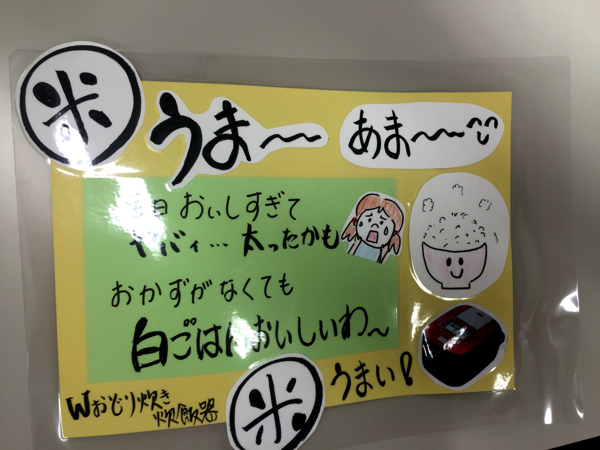 米
うま〜
あま〜〜
毎日 おいしすぎて
ヤバィ… 太ったかも
おかずがなくても
白ごはんおいしいわ〜
米
うまい!
Wおどり炊き
炊飯器